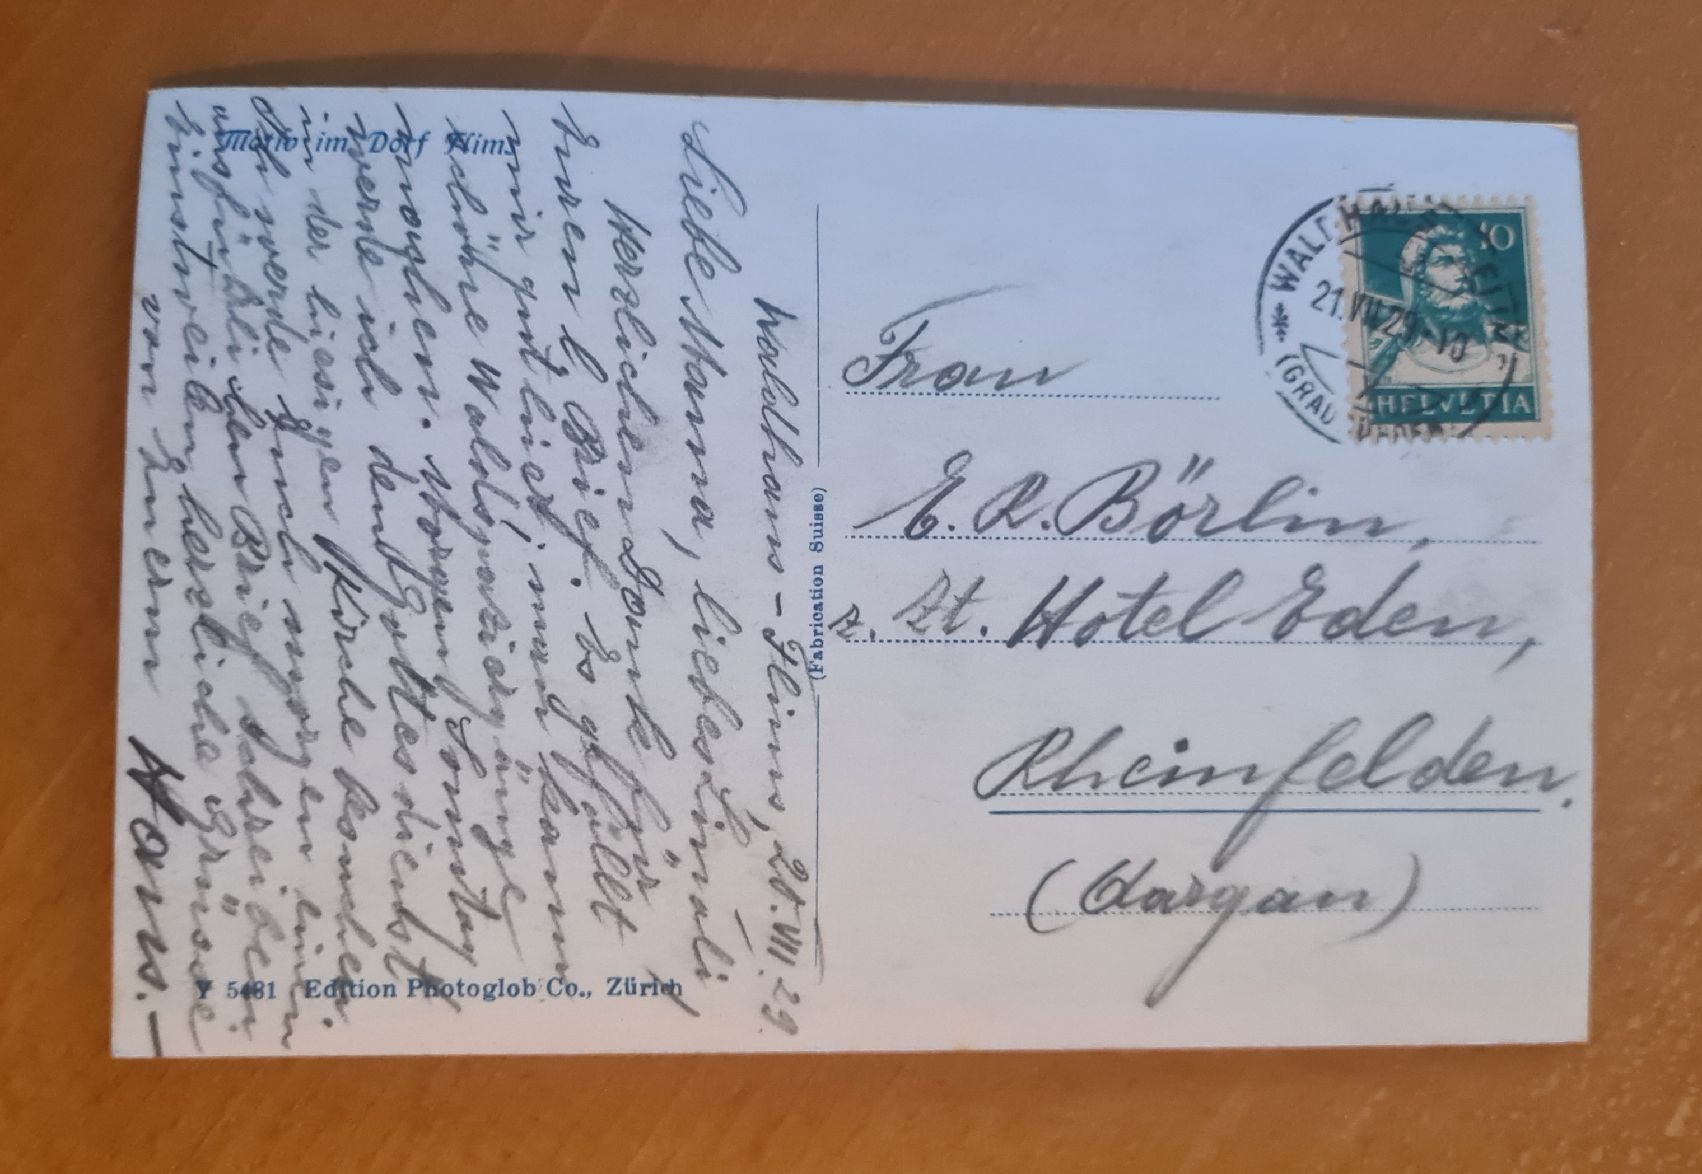 Motiv im Dorf Flims
Waldhaus - Flims, 20.VII.29.
Liebe Mamma, liebes Limäli,
Herzlichen Dank für
Euren l. Brief. Es gefällt
mir gut hier, man kann
schöne Waldspaziergänge
machen. Morgen Sonntag
werde ich dem Gottesdienst
in der hiesigen Kirche
Ich werde Euch morgen einen
ausführlichen Brief schreiben.
Einstweilen herzliche Grüsse
von Euerm Hans.-
Y 5481 Edition Photoglob Co., Zürich
(Fabrication Suisse)
WALDHAUS-FLIMS
21.VII.29-10
(GRAUBÜNDEN)
10
HELVETIA
Frau
E. R. Börlin,
z. Zt. Hotel Eden,
Rheinfelden.
(Aargau)